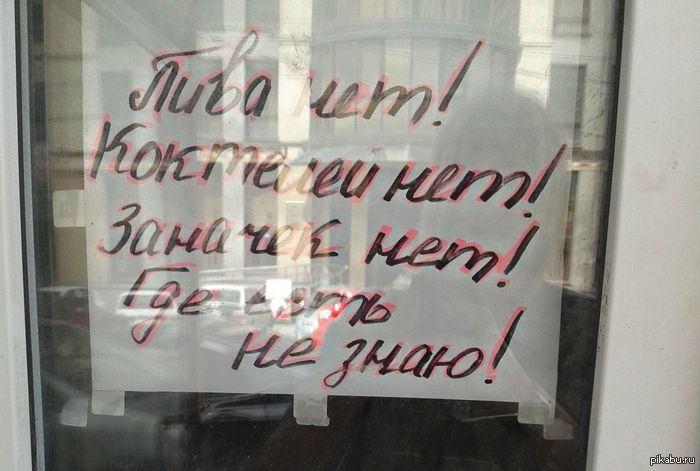 Пива нет!
Коктелей нет!
Заначек нет!
Где есть
не знаю!
pikabu.ru